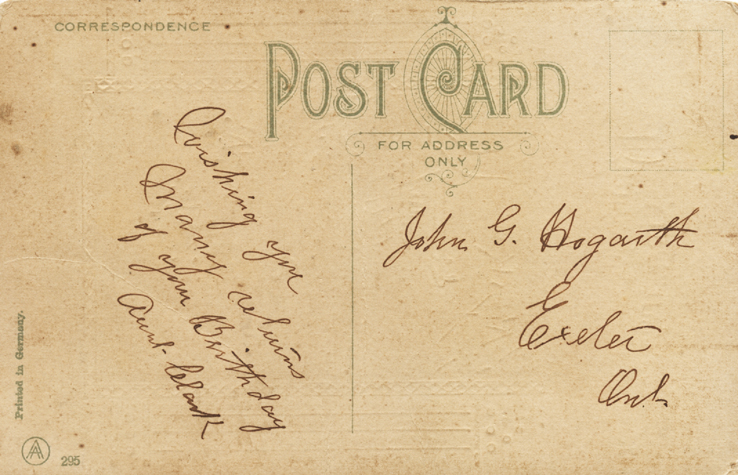 CORRESPONDENCE
POST CARD
FOR ADDRESS
ONLY
Wishing you
Many returns
of your Birthday
Aunt Clark
John G. Hogarth
Exeter
Ont.
Printed in Germany.
AA
295